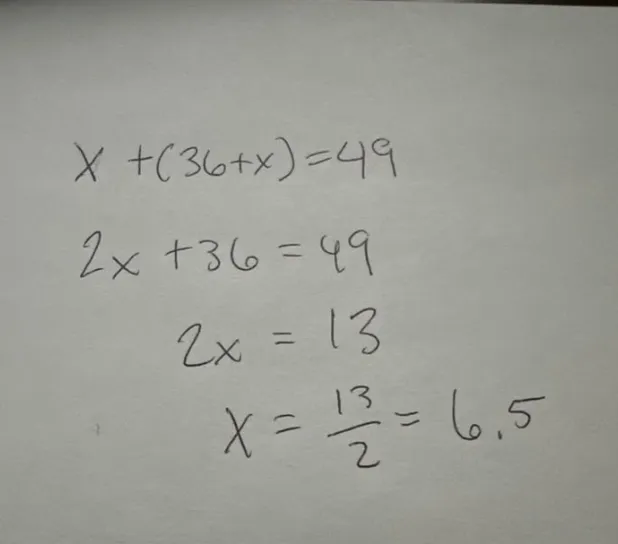 x + (36+x) = 49
2x + 36 = 49
2x = 13
x = 13/2 = 6.5